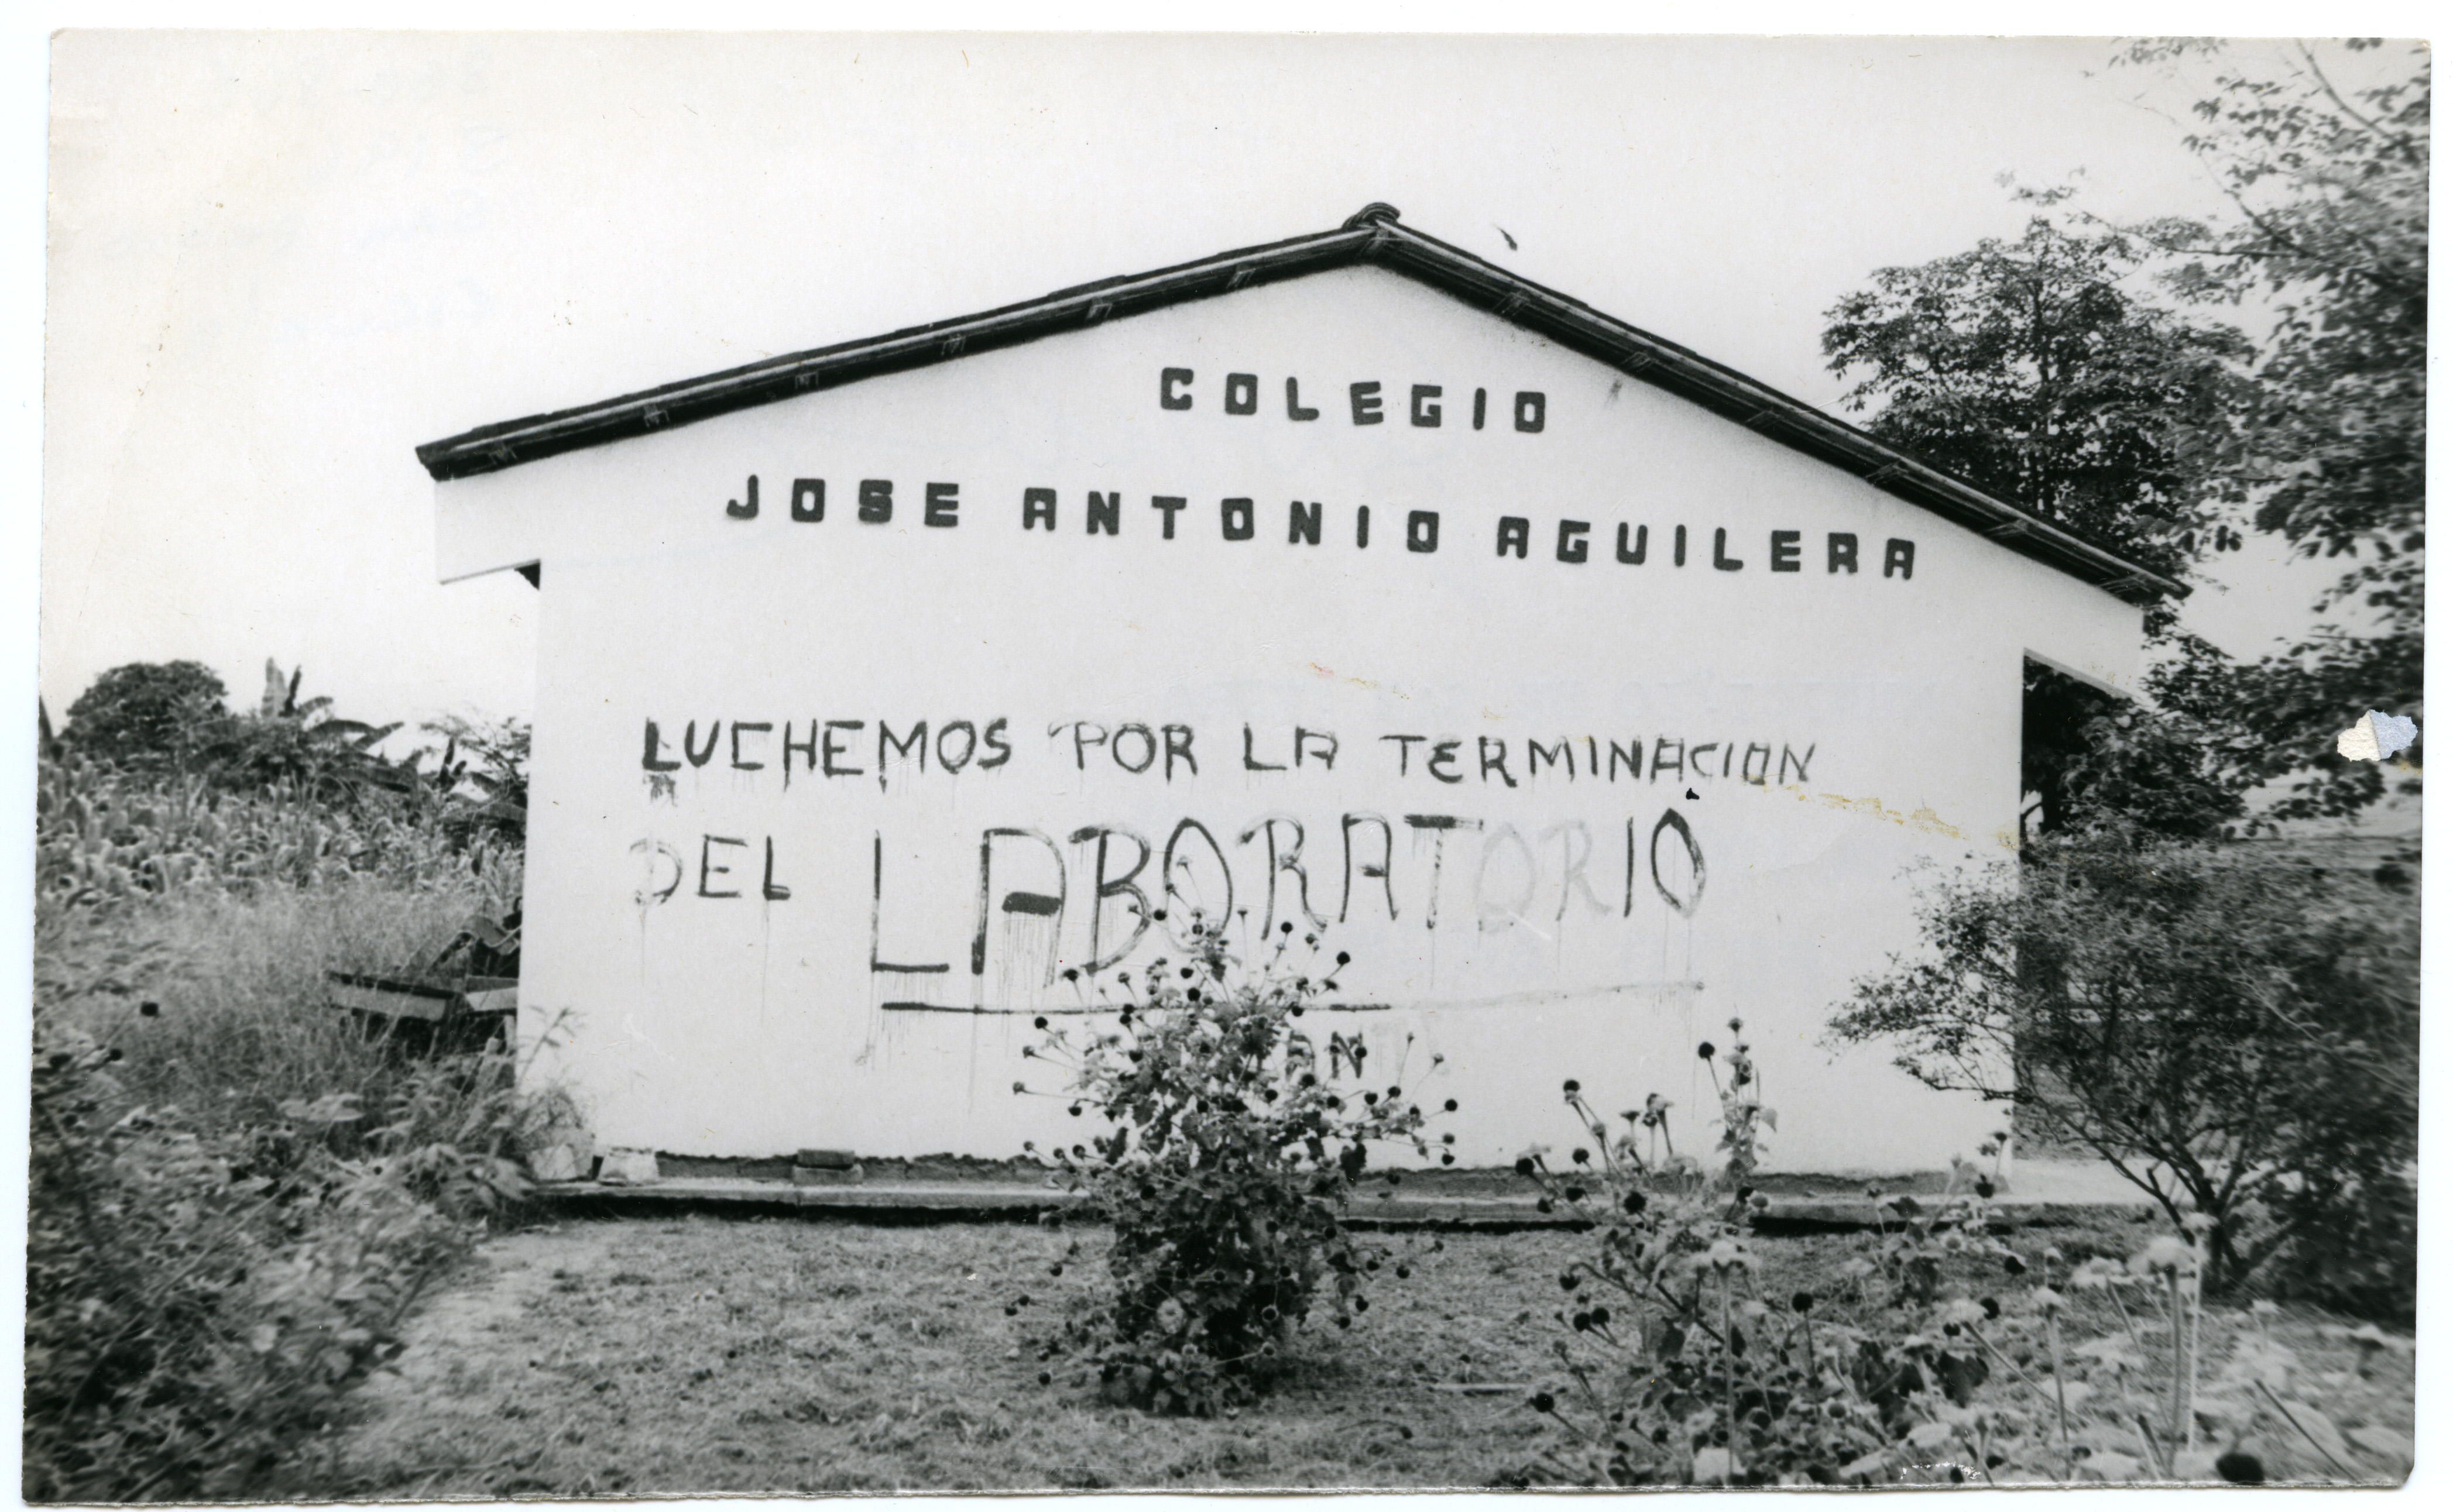 COLEGIO
JOSE ANTONIO AGUILERA
LUCHEMOS POR LA TERMINACION
DEL LABORATORIO